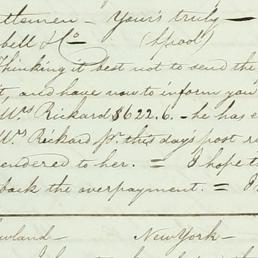 ttlemen – Yours truly –
bell & Co (Spool)
Thinking it best not to send the
it, and have now to inform you
Wrs Rickard $622.6. – he has e
Wrs Rickard pr. this day's post r
endered to her. = I hope t
back the overpayment. = I
wland – New York –